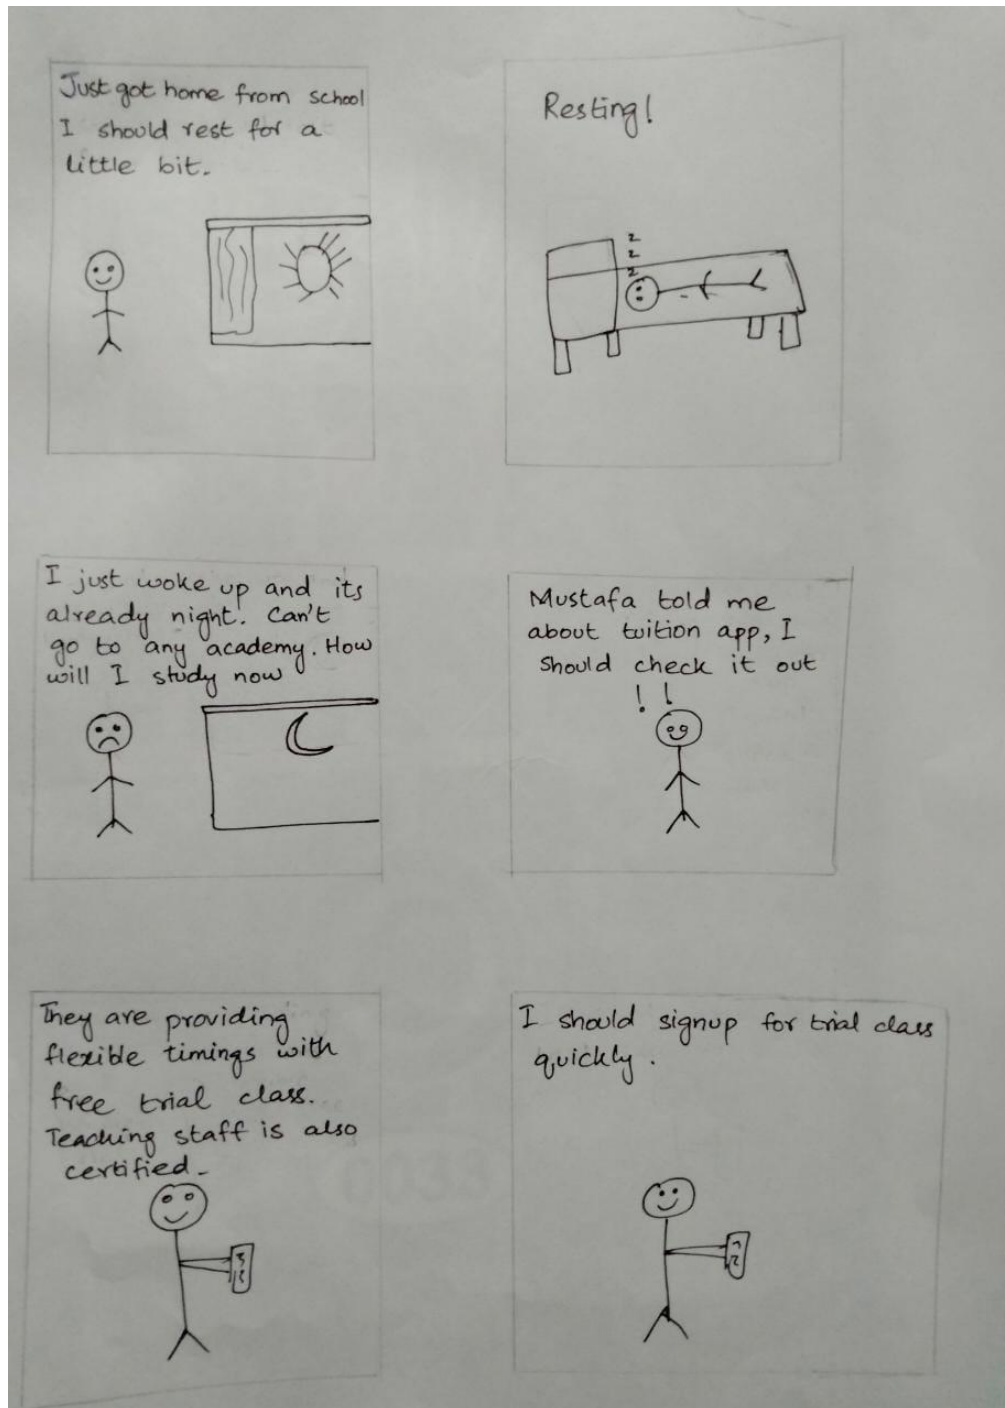 Just got home from school
I should rest for a
little bit.
Resting!
z
z
z
I just woke up and its
already night. Can't
go to any academy. How
will I study now
Mustafa told me
about tuition app, I
should check it out
! !
They are providing
flexible timings with
free trial class.
Teaching staff is also
certified.
I should signup for trial class
quickly.